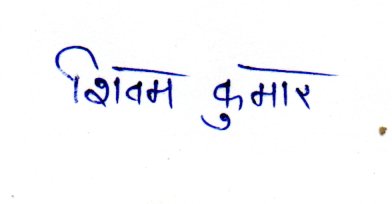 शिवम कुमार